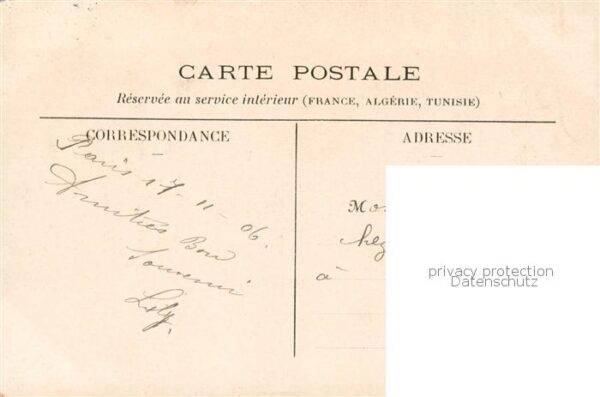 CARTE POSTALE
Réservée au service intérieur (FRANCE, ALGÉRIE, TUNISIE)
CORRESPONDANCE
ADRESSE
Paris 17-11-06.
Amitiés Bon
Souvenir
Lily
Mo
chez
à
privacy protection
Datenschutz